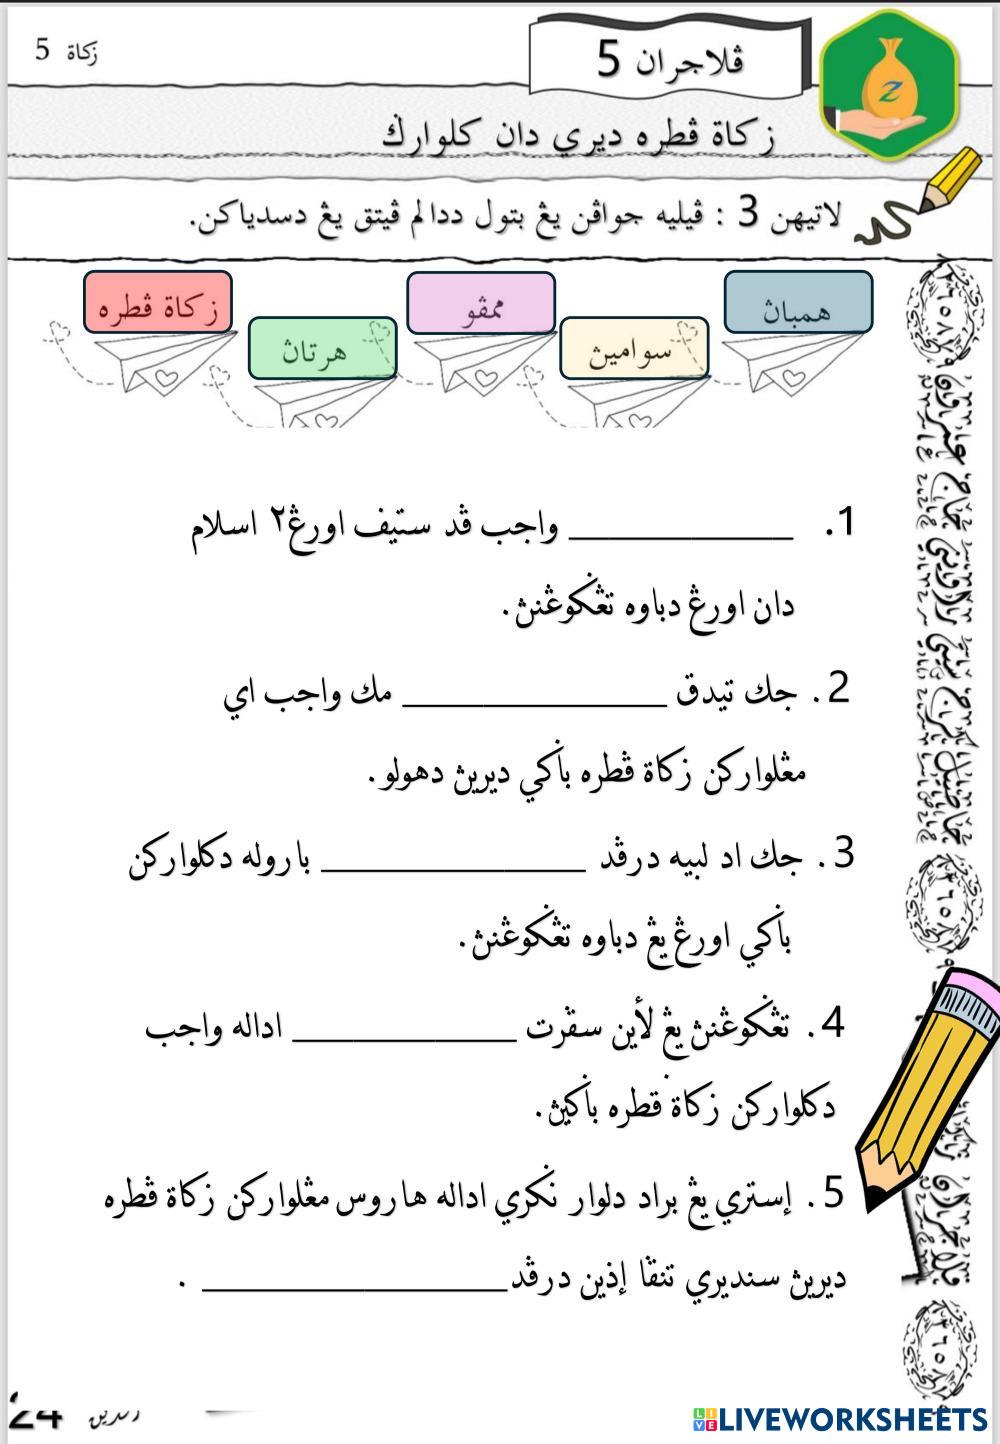 زكاة 5
ڤلاجران 5
زكاة ڤطره ديري دان كلوارݢ
لاتيهن 3 : ڤيليه جواڤن يڠ بتول ددالم ڤيتق يڠ دسدياكن.
همباڽ
ممڤو
زكاة ڤطره
سواميڽ
هرتاڽ
1. ____________ واجب ڤد ستيف اورڠ٢ اسلام
دان اورڠ دباوه تڠݢوڠنڽ.
2. جك تيدق ____________ مك واجب اي
مڠلواركن زكاة ڤطره باݢي ديريڽ دهولو.
3. جك اد لبيه درڤد ____________ باروله دكلواركن
باݢي اورڠ يڠ دباوه تڠݢوڠنڽ.
4. تڠݢوڠنڽ يڠ لأين سڤرت ____________ اداله واجب
دكلواركن زكاة ڤطره باݢيڽ.
5. إستري يڠ براد دلوار نݢري اداله هاروس مڠلواركن زكاة ڤطره
ديريڽ سنديري تنڤا إذين درڤد____________ .
24
LIVEWORKSHEETS